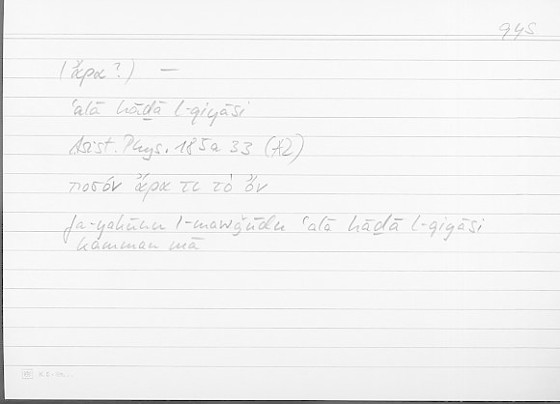 qys
(ἄρα?) —
ʿalā hāḏā l-qiyāsi
Arist. Phys. 185a 33 (A2)
ποσὸν ἄρα τι τὸ ὄν
fa-yakūnu l-mawǧūdu ʿalā hāḏā l-qiyāsi
kamman mā